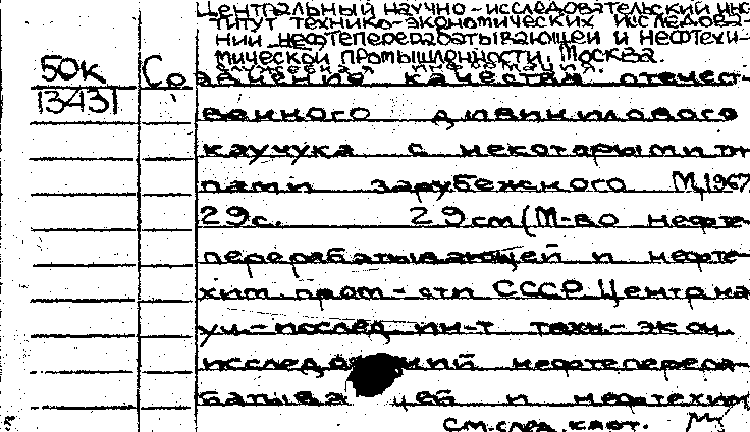 Центральный научно-исследовательский инс
титут технико-экономических исследова-
нии нефтеперерабатывающей и нефтехи-
мической промышленности, Москва.
50к Со
авнение качества отечест-
13431 венного дивинилового
каучука с некоторыми ти-
пами зарубежного М, 1967
29с. 29см (М-во нефте-
перерабатывающей и нефте-
хим. пром-сти СССР. Центр на
уч.-исслед. ин-т техн.-экон.
исследований нефтеперера-
батывающей и нефтехим
См. след. карт.